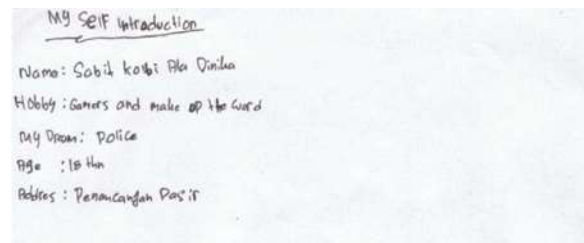 My Self introduction
Name: Sabik kolbi Ala Dinika
Hobby: Gamers and make up the word
My Dream: Police
Age : 18 thn
Addres : Penancangan Pasir